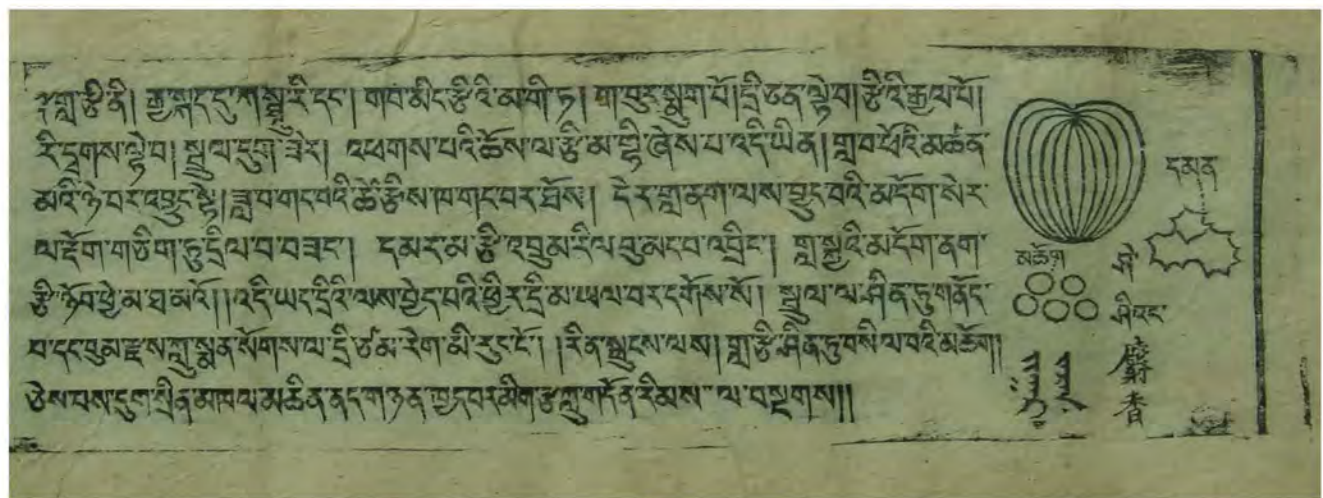 ༈ གླ་རྩི་ནི། རྒྱ་སྐད་དུ་ཀ་སྟཱུ་རི་དང་། གབ་མིང་རྩི་འི་མ་གི་ཏ། ག་བུར་སྨུག་པོ། དྲི་ཅན་ལྟེ་བ། རྩི་འི་རྒྱལ་པོ།
རི་དྭགས་ལྟེ་བ། སྦྲུལ་དུག་ཟེར། འཕགས་པའི་ཆོས་ལ་རྩི་མ་ཧཱི་ཞེས་པ་འདི་ཡིན། གླ་བ་ཕོའི་མཚན་
མའི་ཉེ་བར་འབྱུང་སྟེ། ཟླ་བ་གང་བའི་ཚེ་རྩིས་ཁ་གང་བར་ཐོས། དེར་གླ་ནག་ལས་བྱུང་བའི་མདོག་སེར་
ལ་རྡོག་གཅིག་ཏུ་དྲིལ་བ་བཟང་། དམར་མ་རྩི་འབྲུམ་རིལ་བུ་མང་བ་འབྲིང་། གླ་སྐྱའི་མདོག་ནག་
རྩི་ཉོབ་ཕྱེ་མ་ཐ་མའོ། །འདི་ཡང་དྲི་འི་ལས་བྱེད་པའི་ཕྱིར་དྲི་མ་ཡལ་བར་དགོས་སོ། སྦྲུལ་ལ་ཤིན་ཏུ་གནོད་
པ་དང་བུམ་རྫས་ཀླུ་སྨན་སོགས་ལ་དྲི་ཙམ་རེག་མི་རུང་ངོ་། །རིན་སྦུངས་ལས། གླ་རྩི་ཤིན་ཏུ་བསིལ་བའི་མཆོག།
ཅེས་པས་དུག་སྲིན་མཁལ་མཆིན་ནད་གཉན་ཁྱད་པར་མིག་རྩ་ཀླུ་གདོན་རིམས་ལ་བསྔགས།།
དམན
མཆོག
ཤེ་
ཤིབང་
麝香